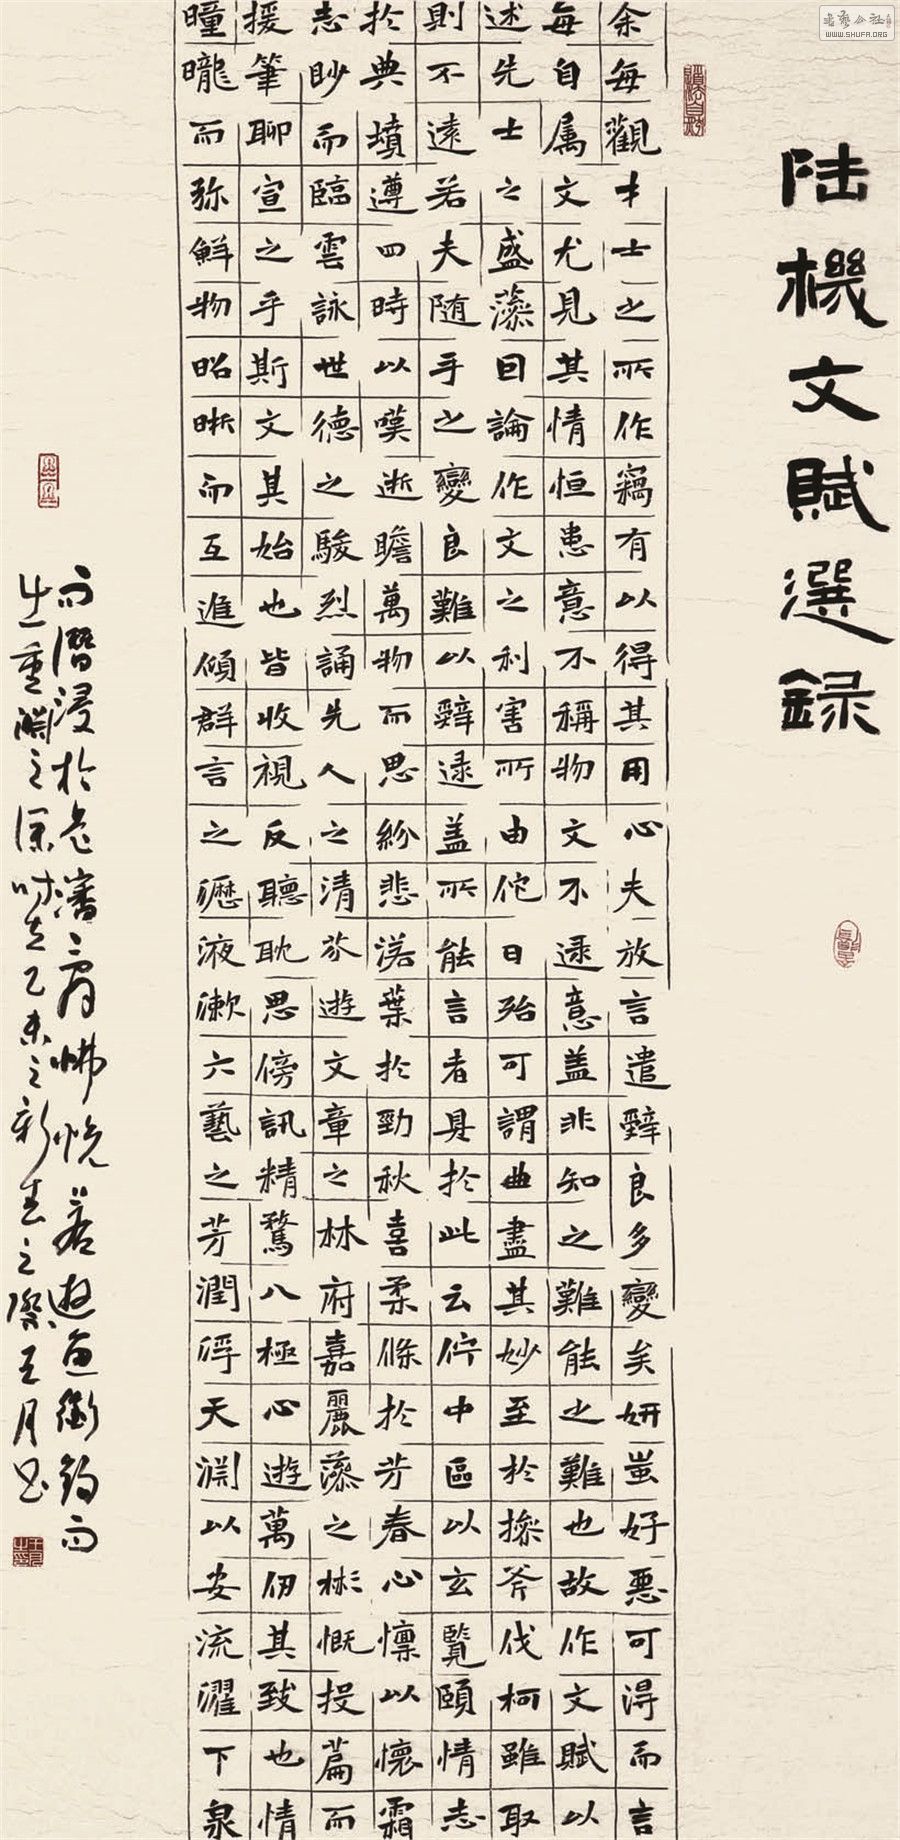 书艺公社
WWW.SHUFA.ORG
陆機文賦選録
余每觀才士之所作竊有以得其用心夫放言遣辭良多變矣妍蚩好惡可得而言
每自属文尤見其情恒患意不稱物文不逮意盖非知之難能之難也故作文賦以
述先士之盛藻因論作文之利害所由佗日殆可謂曲盡其妙至於操斧伐柯雖取
則不遠若夫随手之變良難以辭逮盖所能言者具於此云佇中區以玄覽頤情志
於典墳遵四時以嘆逝瞻萬物而思紛悲落葉於勁秋喜柔條於芳春心懍以懷霜
志眇而臨雲詠世德之駿烈誦先人之清芬遊文章之林府嘉麗藻之彬慨投篇而
援筆聊宣之乎斯文其始也皆收視反聽耽思傍訊精騖八極心遊萬仞其致也情
曈曨而弥鮮物昭晣而互進傾群言之瀝液漱六藝之芳潤浮天淵以安流濯下泉
而潛浸於是怫悦若遊魚銜鈎而
出重淵之深時在乙未之新春之際王月